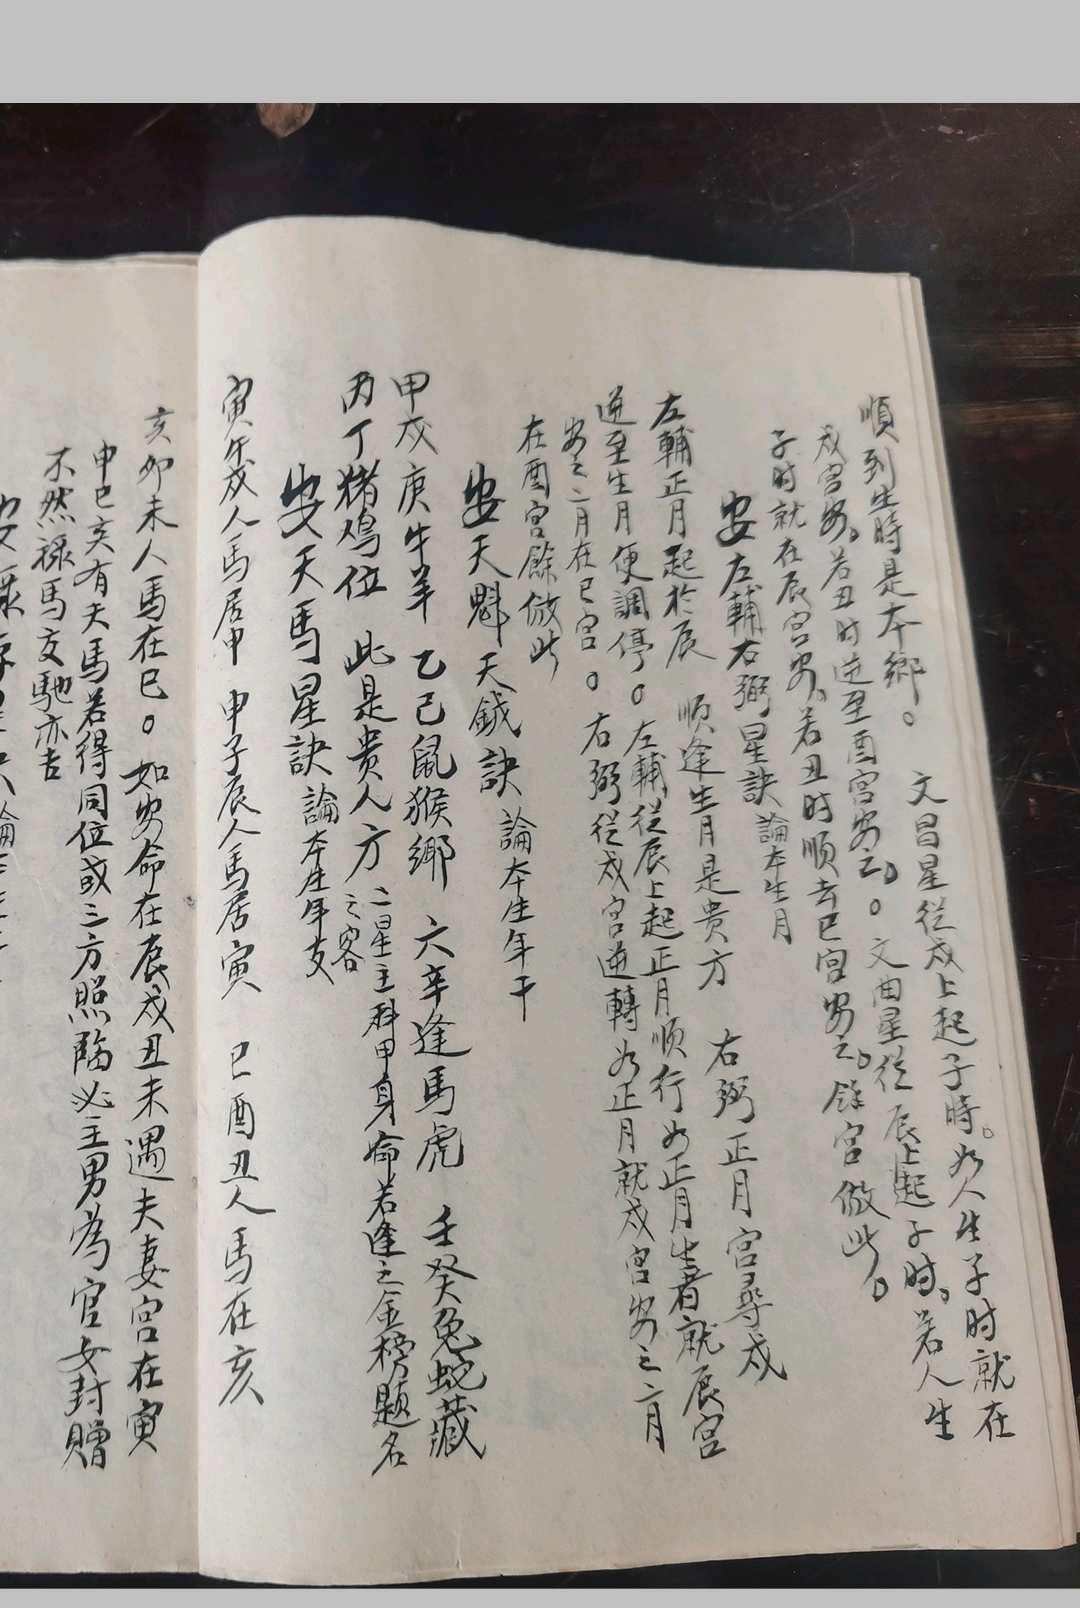 順到生時是本鄉。 文昌星從戍上起子時。如人生子时就在
戍宫安。若丑时逆至酉宫安云。。文曲星從辰上起子时。若人生
子时就在辰宫安。若丑时順去巳宫安云。餘宫倣此。
安左輔右弼星訣 論本生月
左輔正月起於辰 順逢生月是贵方 右弼正月宫尋戍
逆至生月便調停。左輔從辰上起正月順行如正月生者就辰宫
安之二月在巳宫。右弼從戍宫逆轉如正月就戍宫安之二月
在酉宫餘倣此
安天魁天鉞訣 論本生年干
甲戊庚牛羊 乙己鼠猴鄉 六辛逢馬虎 壬癸兔蛇藏
丙丁猪鸡位 此是贵人方 二星主科甲身命若逢之金榜題名
之客
安天馬星訣 論本生年支
寅午戌人馬居申 申子辰人馬居寅 巳酉丑人馬在亥
亥卯未人馬在巳。如安命在辰戍丑未遇夫妻宫在寅
申巳亥有天馬若得同位或三方照臨必主男為官女封贈
不然禄馬交馳亦吉